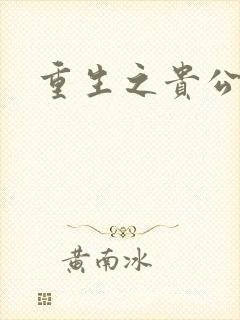 重生之貴公
黄南冰